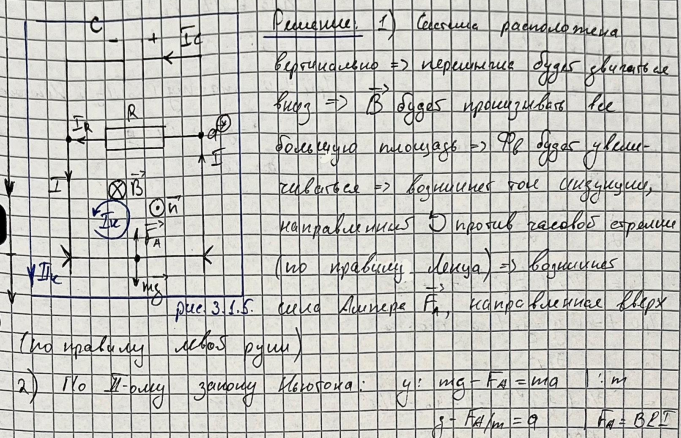 C
- +
Ic
Решение: 1) Система расположена
вертикально => перемычка будет двигаться
вниз => B будет пронизывать все
IR R a
I I
большую площадь => Фв будет увели-
B
чиваться => возникнет ток индукции,
Ik n
FA
направленный против часовой стрелки
(по правилу Ленца) => возникнет
IIк mg
рис. 3.1.5.
сила Ампера FA, направленная вверх
(по правилу левой руки)
2) По II-ому закону Ньютона: y: mg - FA = ma | : m
g - FA/m = a FA = BlI